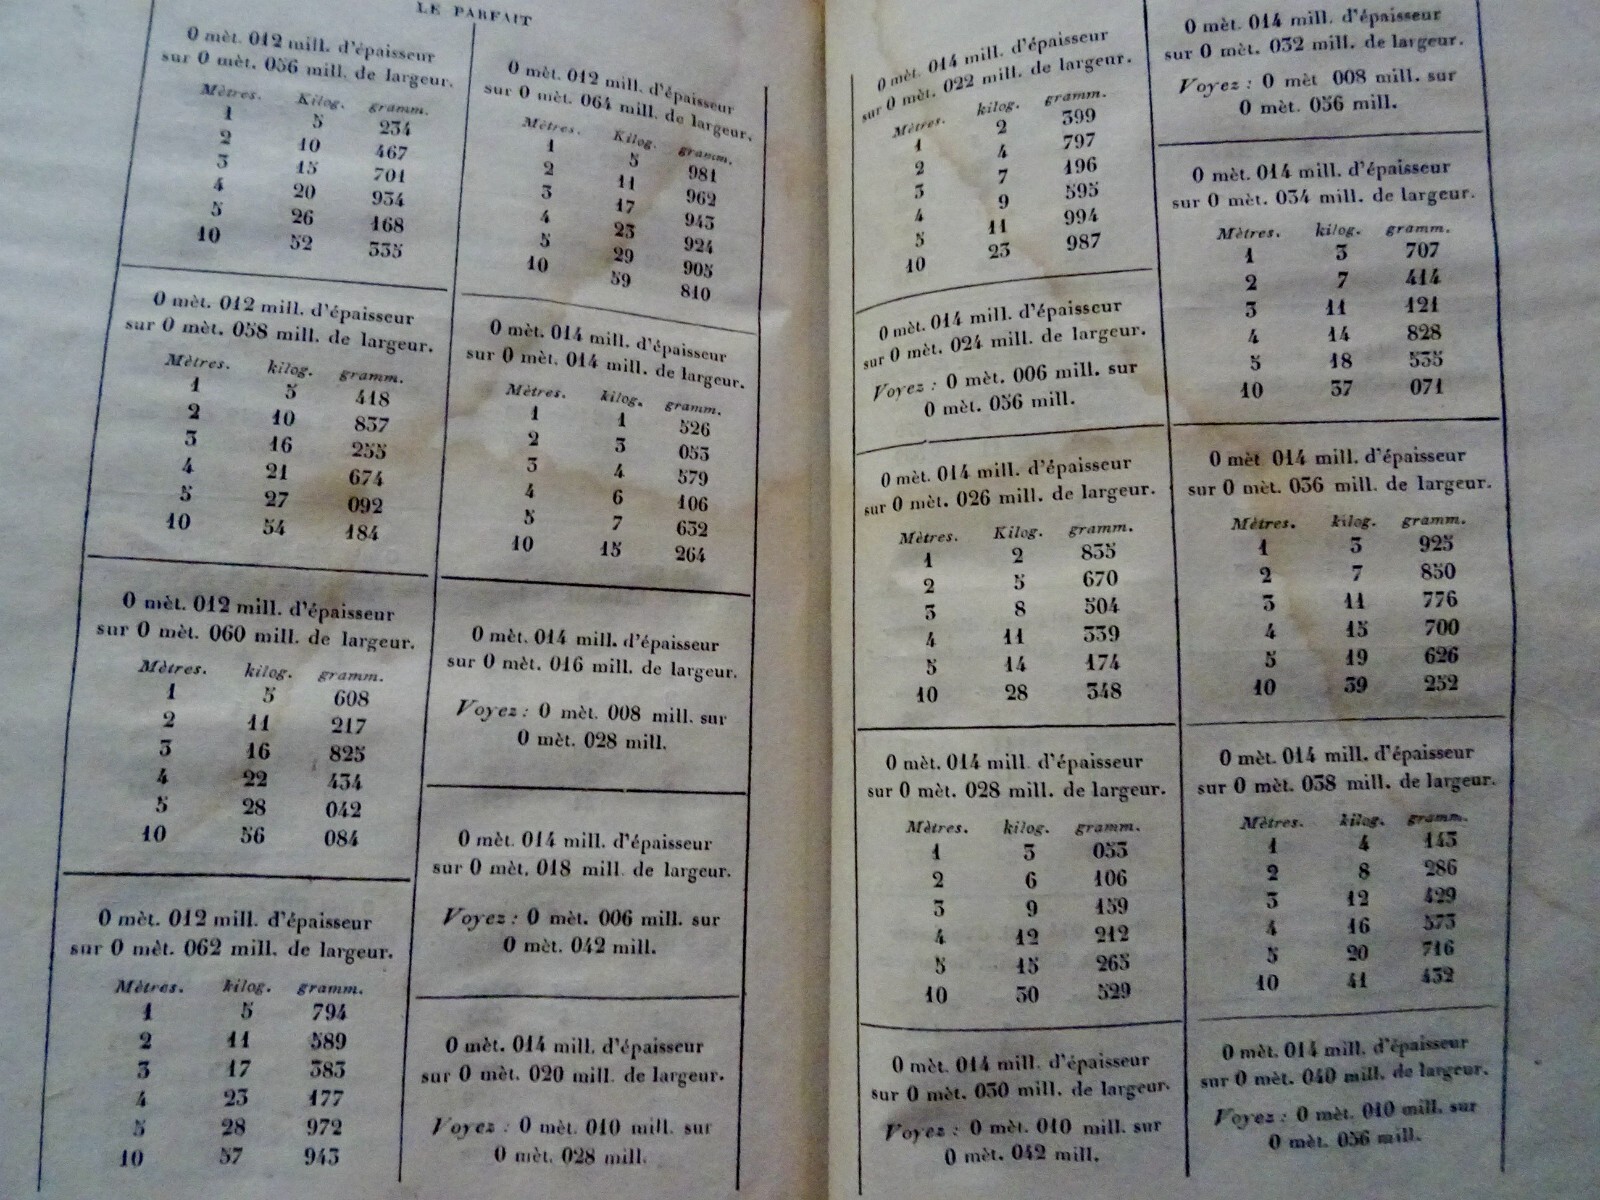 LE PARFAIT
0 mèt. 012 mill. d'épaisseur
sur 0 mèt. 056 mill. de largeur.
Mètres. Kilog. gramm.
1 5 234
2 10 467
3 15 701
4 20 934
5 26 168
10 52 335
0 mèt. 012 mill. d'épaisseur
sur 0 mèt. 058 mill. de largeur.
Mètres. kilog. gramm.
1 5 418
2 10 837
3 16 255
4 21 674
5 27 092
10 54 184
0 mèt. 012 mill. d'épaisseur
sur 0 mèt. 060 mill. de largeur.
Mètres. kilog. gramm.
1 5 608
2 11 217
3 16 825
4 22 434
5 28 042
10 56 084
0 mèt. 012 mill. d'épaisseur
sur 0 mèt. 062 mill. de largeur.
Mètres. kilog. gramm.
1 5 794
2 11 589
3 17 383
4 23 177
5 28 972
10 57 943
0 mèt. 012 mill. d'épaisseur
sur 0 mèt. 064 mill. de largeur.
Mètres. Kilog. gramm.
1 5 981
2 11 962
3 17 943
4 23 924
5 29 905
10 59 810
0 mèt. 014 mill. d'épaisseur
sur 0 mèt. 014 mill. de largeur.
Mètres. kilog. gramm.
1 1 526
2 3 053
3 4 579
4 6 106
5 7 632
10 15 264
0 mèt. 014 mill. d'épaisseur
sur 0 mèt. 016 mill. de largeur.
Voyez : 0 mèt. 008 mill. sur
0 mèt. 028 mill.
0 mèt. 014 mill. d'épaisseur
sur 0 mèt. 018 mill. de largeur.
Voyez : 0 mèt. 006 mill. sur
0 mèt. 042 mill.
0 mèt. 014 mill. d'épaisseur
sur 0 mèt. 020 mill. de largeur.
Voyez : 0 mèt. 010 mill. sur
0 mèt. 028 mill.
0 mèt. 014 mill. d'épaisseur
sur 0 mèt. 022 mill. de largeur.
Mètres. kilog. gramm.
1 2 399
2 4 797
3 7 196
4 9 595
5 11 994
10 23 987
0 mèt. 014 mill. d'épaisseur
sur 0 mèt. 024 mill. de largeur.
Voyez : 0 mèt. 006 mill. sur
0 mèt. 056 mill.
0 mèt. 014 mill. d'épaisseur
sur 0 mèt. 026 mill. de largeur.
Mètres. Kilog. gramm.
1 2 835
2 5 670
3 8 504
4 11 339
5 14 174
10 28 348
0 mèt. 014 mill. d'épaisseur
sur 0 mèt. 028 mill. de largeur.
Mètres. kilog. gramm.
1 3 053
2 6 106
3 9 159
4 12 212
5 15 265
10 30 529
0 mèt. 014 mill. d'épaisseur
sur 0 mèt. 030 mill. de largeur.
Voyez : 0 mèt. 010 mill. sur
0 mèt. 042 mill.
0 mèt. 014 mill. d'épaisseur
sur 0 mèt. 032 mill. de largeur.
Voyez : 0 mèt 008 mill. sur
0 mèt. 056 mill.
0 mèt. 014 mill. d'épaisseur
sur 0 mèt. 034 mill. de largeur.
Mètres. kilog. gramm.
1 3 707
2 7 414
3 11 121
4 14 828
5 18 535
10 37 071
0 mèt 014 mill. d'épaisseur
sur 0 mèt. 036 mill. de largeur.
Mètres. kilog. gramm.
1 3 925
2 7 850
3 11 776
4 15 700
5 19 626
10 39 252
0 mèt. 014 mill. d'épaisseur
sur 0 mèt. 038 mill. de largeur.
Mètres. kilog. gramm.
1 4 143
2 8 286
3 12 429
4 16 573
5 20 716
10 41 432
0 mèt. 014 mill. d'épaisseur
sur 0 mèt. 040 mill. de largeur.
Voyez : 0 mèt. 010 mill. sur
0 mèt. 056 mill.